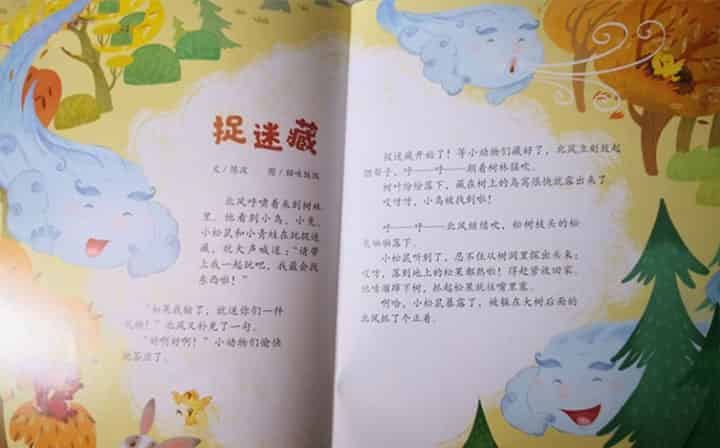 捉迷藏
文/陈波 图/猫咪饭饭
北风呼啸着来到树林
里。他看到小鸟、小兔、
小松鼠和小青蛙在玩捉迷
藏，就大声喊道：“请带
上我一起玩吧，我最会找
东西啦！”
“如果我输了，就送你们一件
礼物！”北风又补充了一句。
“好啊好啊！”小动物们愉快
地答应了。
捉迷藏开始了！等小动物们藏好了，北风立刻鼓起
腮帮子，呼——呼——朝着树林猛吹。
树叶纷纷落下，藏在树上的鸟窝很快就露出来了
哎呀呀，小鸟被找到啦！
呼——呼——北风继续吹，松树枝头的松
果啪啪落下。
小松鼠听到了，忍不住从树洞里探出头来：
哎呀，落到地上的松果都熟啦！得赶紧收回家。
他嗖溜蹿下树，抓起松果就往嘴里塞。
啊哈，小松鼠暴露了，被躲在大树后面的
北风抓了个正着。